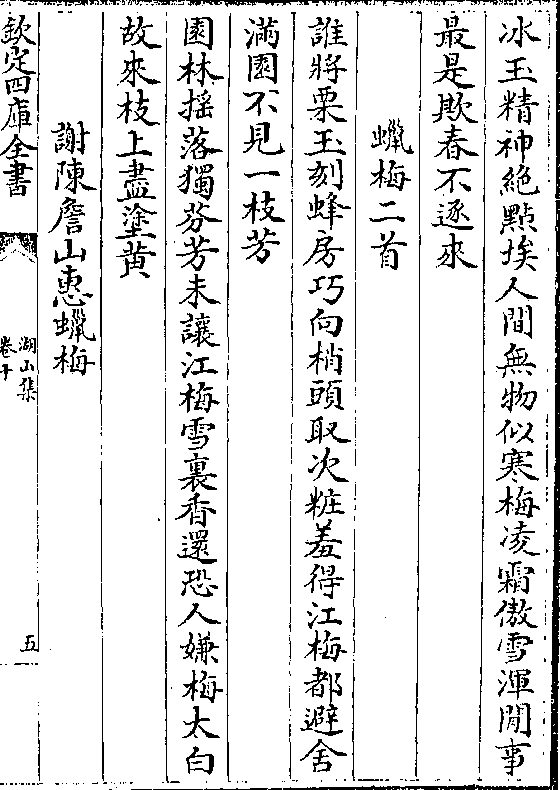 冰玉精神絶點埃人間無物似寒梅凌霜傲雪渾閒事
最是欺春不逐來
蠟梅二首
誰將栗玉刻蜂房巧向梢頭取次粧羞得江梅都避舍
滿園不見一枝芳
園林揺落獨芬芳未讓江梅雪裏香還恐人嫌梅太白
故來枝上盡塗黄
謝陳詹山惠蠟梅
欽定四庫全書
湖山集
卷十
五